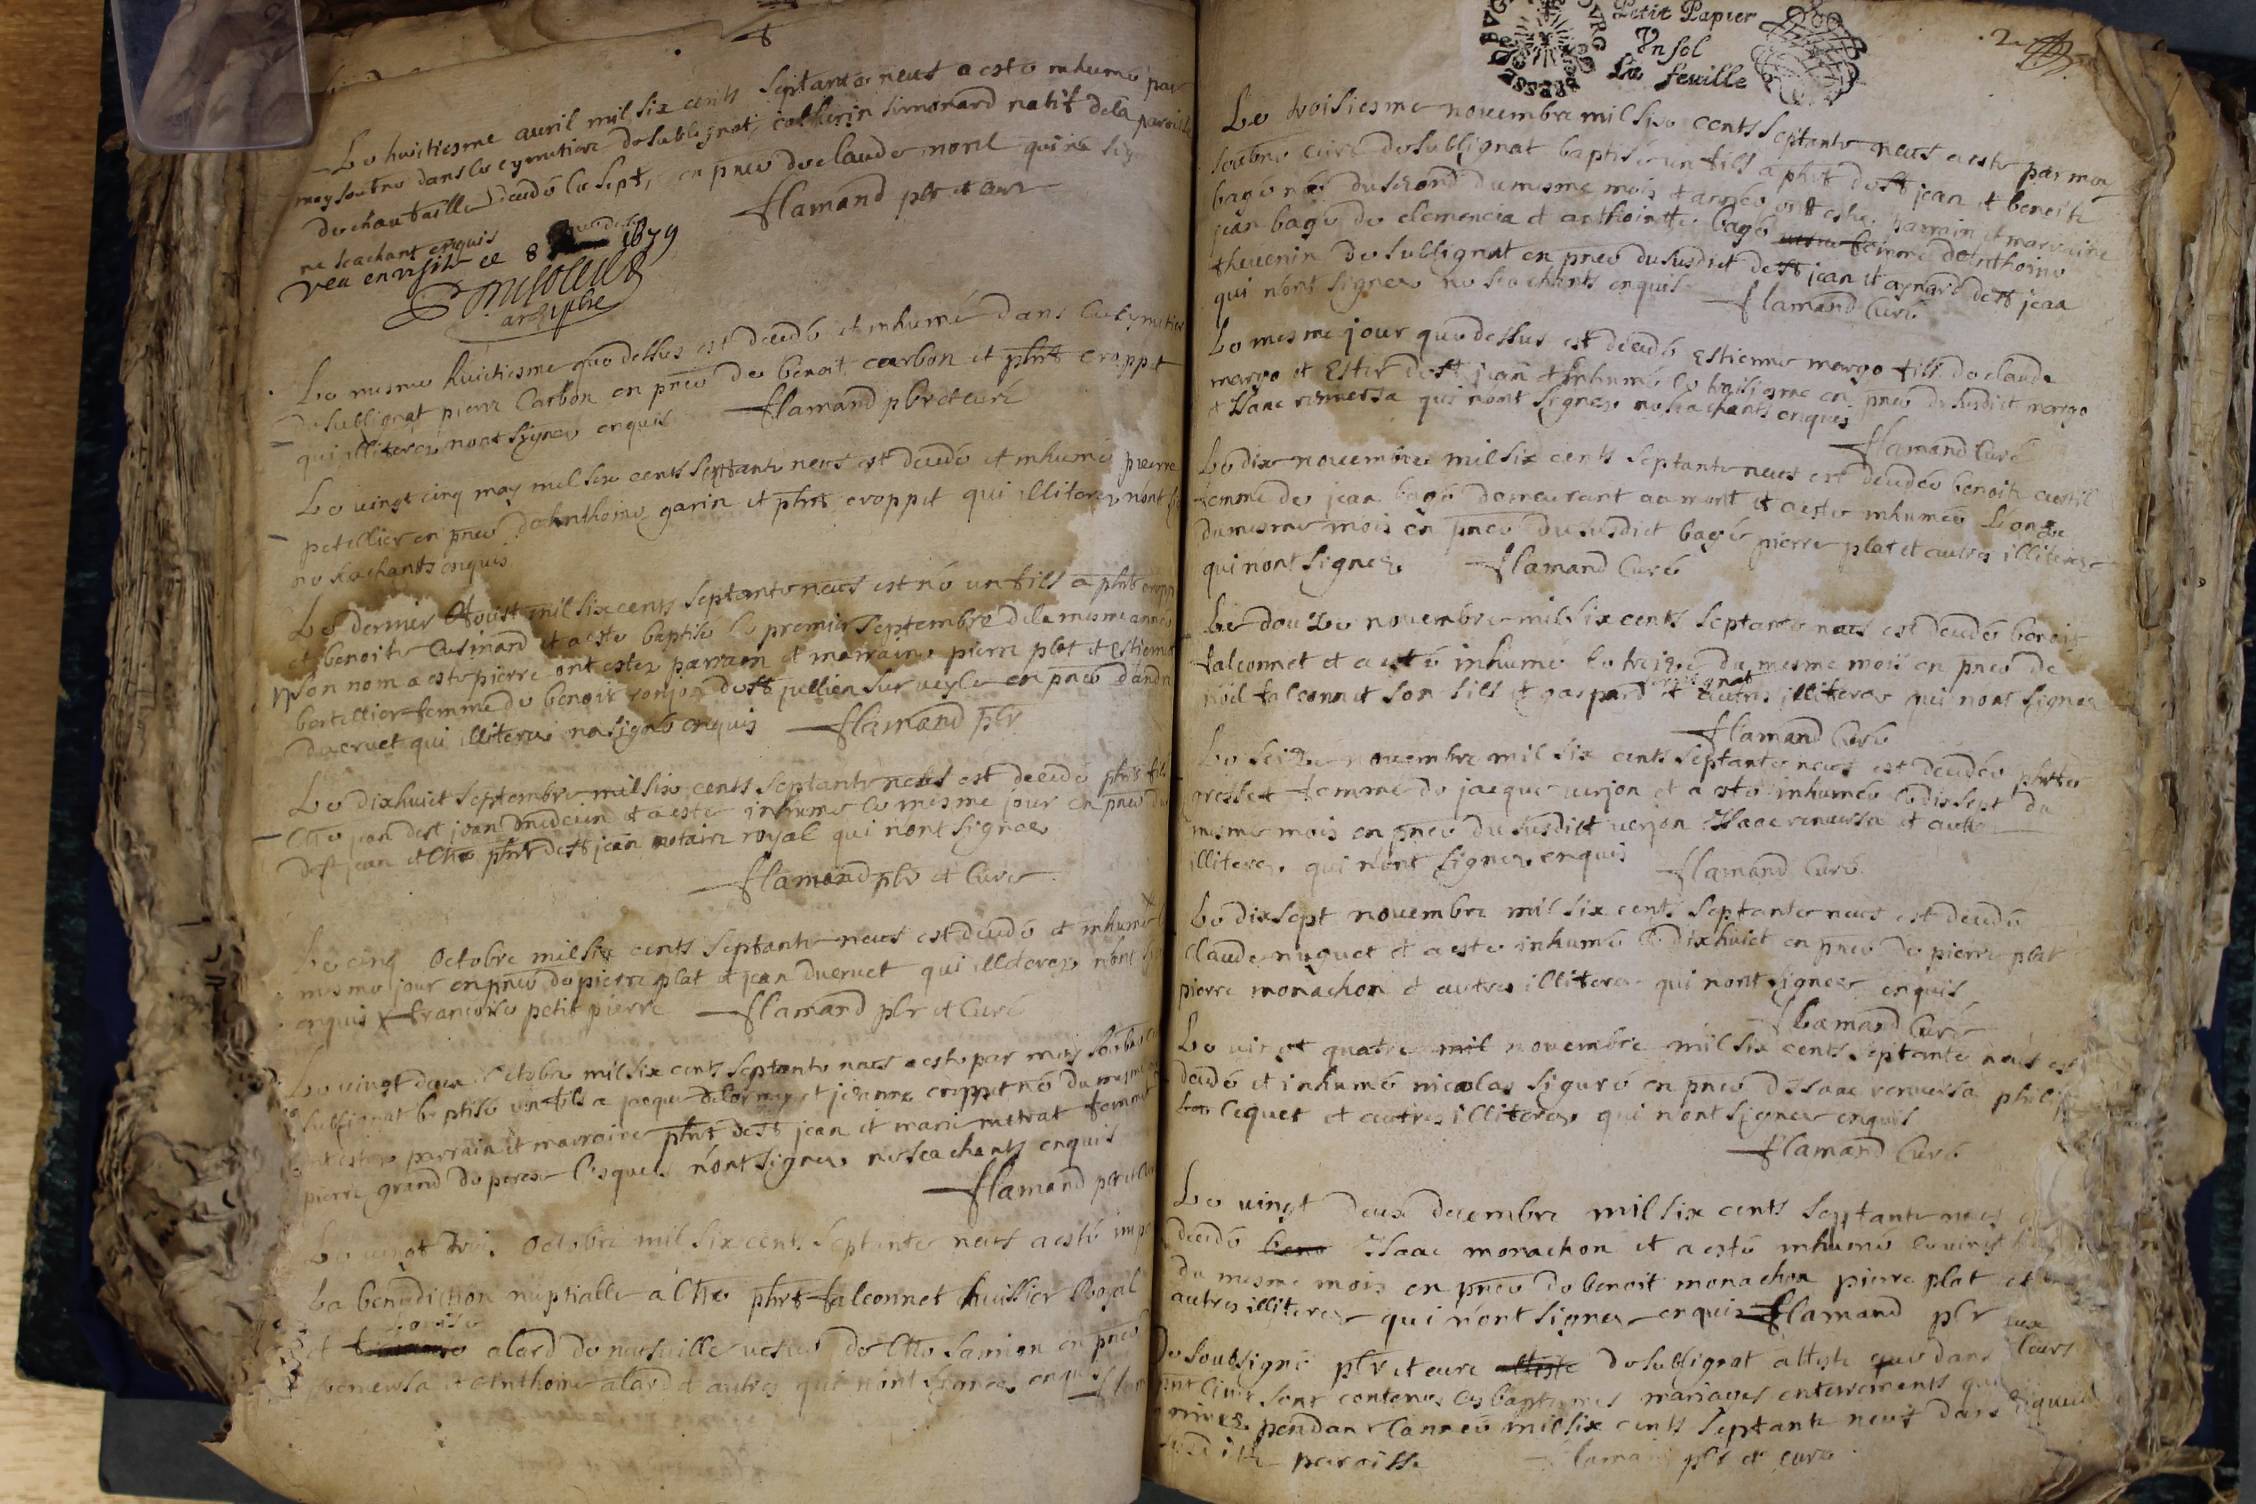 Le huitiesme auril mil six cents septante neuf a esté inhumé par
moy soubné dans le cymitiere de sublignat, catherin simonard natif de la paroisse
de chaufaille decedé le sept, en pnce de claude morel qui na sig
ne scachant enquis
flamand pbr et curé
veu en visite ce 8 1679
archiprbre
Le mesme huictiesme que dessus est decedé et inhumé dans le cymitiere
de sublignat pierre Carbon en pnce de benoit carbon et phrt croppet
qui illiterez nont signez enquis flamand pbr et curé
Le vingt cinq may mil six cents septante neuf est decedé et inhumé pierre
petellier en pnce d'Anthoine garin et phrt croppet qui illiterez n'ont
ne scachants enquis
Le dernier Aoust mil six cents septante neuf est né un fils a phrt cropp
et benoite Cusinand et a esté baptisé le premier septembre de la mesme année
son nom a esté pierre ont estez parrain et marraine pierre plat et estienne
bertellier femme de benoit ronjon de st jullien sur veyle en pnce d'andr
ducruet qui illiteré na signé enquis flamand pbr
Le dixhuict septembre mil six cents septante neuf est decedé phrt fils
Me jean de st jean medecin et a esté inhumé le mesme jour en pnce du
de st jean et Me phrt de st jean notaire royal qui n'ont signez
flamand pbr et Curé
Le cinq Octobre mil six cents septante neuf est decedé et inhumé
mesme jour en pnce de pierre plat et jean ducruet qui illiterez n'ont
enquis x francoise petit pierre flamand pbr et Curé
Le vingt deux Octobre mil six cents septante neuf a esté par moy soubné
sublignat baptisé un fils a jacque delormey et jeanne croppet né du mesme
ont estez parrain et marraine phrt de st jean et marie metrat femme
pierre grand de perex lesquels n'ont signez ne scachants enquis
flamand pbr et Cur
Le vingt trois Octobre mil six cents septante neuf a esté imp
La benediction nuptialle a Me phrt falconnet huissier Royal
Louise
et alard de neufville vefve de Me Samion en pnce
renversa et anthoine alard et autres qui n'ont signez enquis flam
Petit Papier
Vn sol
La feuille
2
Le troisiesme novembre mil six cents septante neuf a esté par moy
soubné curé de sublignat baptisé un fils a phrt de st jean et benoite
bagé né du second du mesme mois et année ont estez parrain et marraine
jean bagé de clemencia et anthoinette bagé femme d'Anthoine
thevenin de sublignat en pnce du susdict de st jean et aymard de st jean
qui n'ont signez ne scachants enquis flamand Curé
Le mesme jour que dessus est decedé Estienne margo fils de claude
margo et Ester de st jean et inhumé le huitiesme en pnce du susdict margo
et Isaac renversa qui n'ont signez ne scachants enquis
flamand Curé
Le dix novembre mil six cents septante neuf est decedée benoite curtil
femme de jean bagé demeurant au mont et a estée inhumée l'onze
du mesme mois en pnce du susdict bagé pierre plat et autres illiterez
qui n'ont signez flamand Curé
Le douze novembre mil six cents septante neuf est decedé benoit
falconnet et a esté inhumé le treize du mesme mois en pnce de
noel falconnet son fils et gaspard et autres illiterez qui nont signez
flamand Curé
Le seize novembre mil six cents septante neuf est decedée phrte
gresset femme de jacque verjon et a esté inhumée le dissept du
mesme mois en pnce du susdict verjon Isaac renversa et autres
illiterez qui n'ont signez enquis flamand Curé
Le dixsept novembre mil six cents septante neuf est decedé
Claude nuguet et a esté inhumé le dixhuict en pnce de pierre plat
pierre monachon et autres illiterez qui n'ont signez enquis
flamand Curé
Le vingt quatre mil novembre mil six cents septante neuf est
decedé et inhumé nicolas siguré en pnce d'Isaac renversa philip
lequet et autres illiterez qui n'ont signez enquis
flamand Curé
Le vingt deux decembre mil six cents septante neuf
decedé beno Isaac monachon et a esté inhumé le vingt
du mesme mois en pnce de benoit monachon pierre plat et
autres illiterez qui n'ont signez enquis flamand pbr
Je soubsigné pbr et curé atteste de sublignat atteste que dans
pnt livre sont contenus les baptesmes mariages enterrements qui
arrivez pendan l'année mil six cents septante neuf dans
susditte paroisse flamand pbr et curé